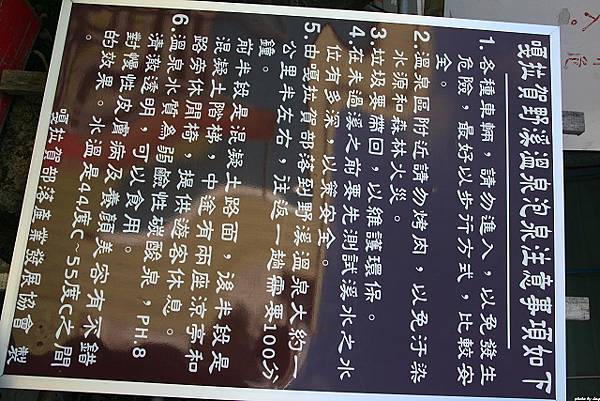 嘎拉賀野溪溫泉泡泉注意事項如下
1.各種車輛，請勿進入，以免發生
危險，最好以步行方式，比較安
全。
2.溫泉區附近請勿烤肉，以免汙染
水源和森林火災。
3.垃圾要帶回，以維護環保。
4.在未過溪之前要先測試溪水之水
位有多深，以策安全。
5.由嘎拉賀部落到野溪溫泉大約一
公里半左右，往返一趟需要100分
鐘。
前半段是混凝土路面，後半段是
混凝土階梯，中途有兩座涼亭和
路旁休閒椅，提供遊客休息。
6.溫泉水質為弱鹼性碳酸泉，PH.8
清澈透明，可以食用。
對慢性皮膚病及養顏美容有不錯
的效果。水溫是44度C~55度C之間
嘎拉賀部落產業發展協會 製